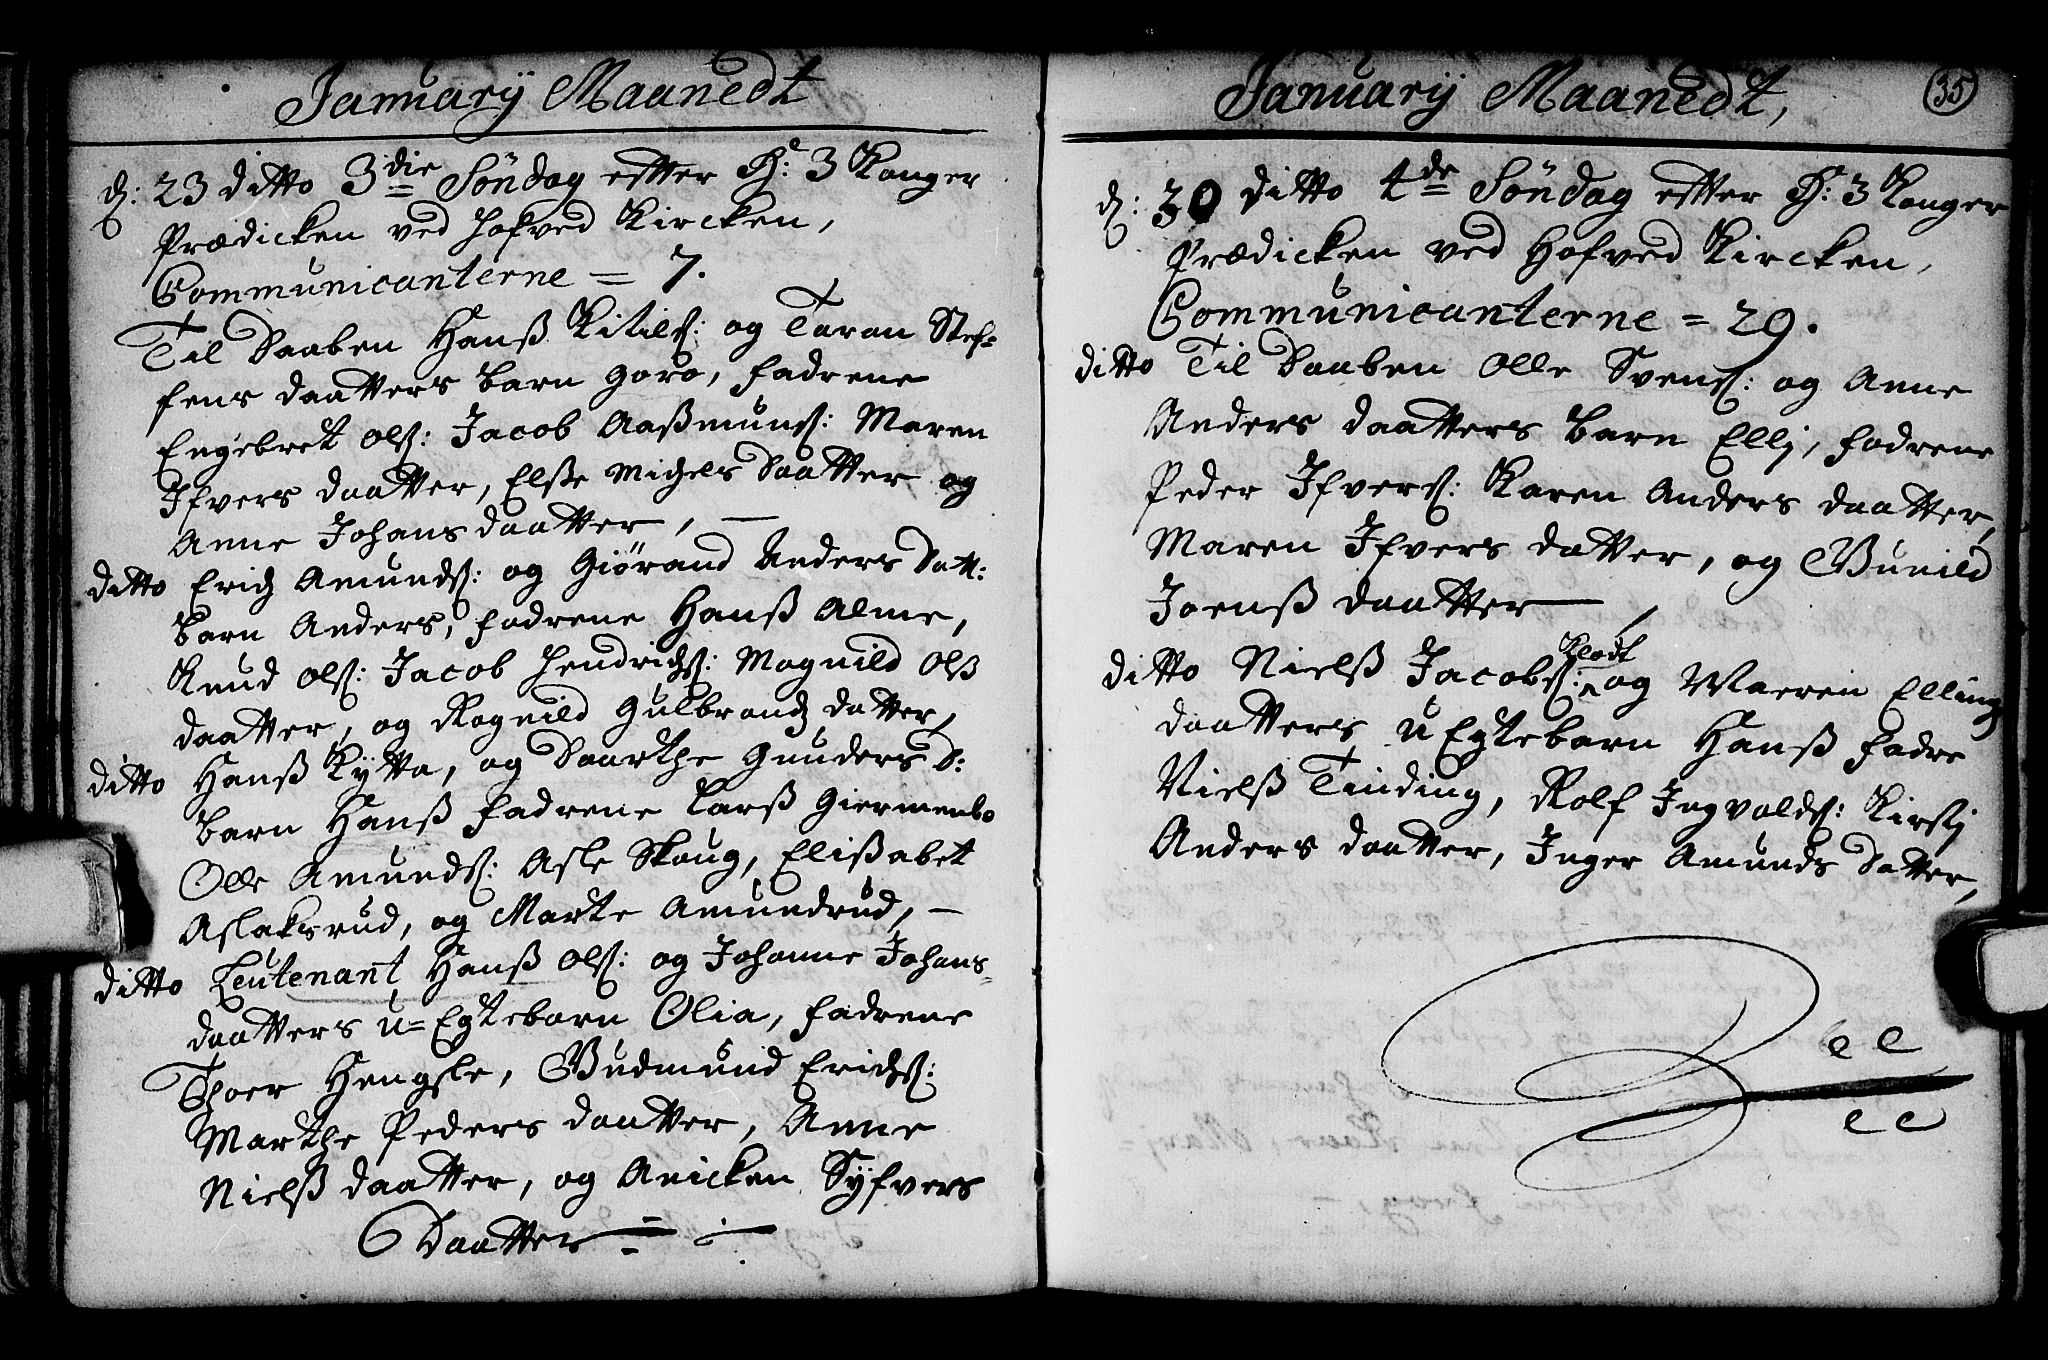 Januarÿ Maanedt
d: 23 ditto 3die Söndag efter H: 3 Konger
Prædicken ved Hofved Kircken,
Communicanterne = 7.
Til Daaben Hanß Kitils: og Taran Stef-
fens daatters barn Goro, Fadrene
Engebret Ols: Jacob Aaßmunds: Maren
Ifvers daatter, Elße Michels Daatter og
Anne Johans daatter, —
ditto Erich Amunds: og Giörand Anders Datt:
barn Anders, Fadrene Hanß Alme,
Knud Ols: Jacob Hendrichs: Magnild Olß
daatter, og Ragnild Gulbrands datter,
ditto Hanß Kÿtta, og Daarthe Gunders D:
barn Hanß Fadrene Larß Giermenbo
Olle Amunds: Asle Skoug, Elißabet
Aslaksrud, og Marte Amundrud, —
ditto Leutenant Hanß Ols: og Johanne Johans-
daatters u-Egtebarn Olia, Fadrene
Thoer Hengsle, Gudmund Erichs:
Marthe Peders daatter, Anne
Nielß daatter, og Anicken Sÿfvers
Daatter
Januarÿ Maanedt,
35
d: 30 ditto 4de Söndag efter H: 3 Konger
Prædicken ved Hofved Kircken,
Communicanterne = 29.
ditto Til Daaben Olle Svens: og Anne
Anders daatters barn Ellj, Fadrene
Peder Ifvers: Karen Anders daatter,
Maren Ifvers datter, og Gunild
Joenß daatter —,
Klodt
ditto Nielß Jacobs: og Maren Ellings
daatters u Egtebarn Hanß Fadre
Nielß Tinding, Rolf Ingvolds: Kirstj
Anders daatter, Inger Amunds Datter,